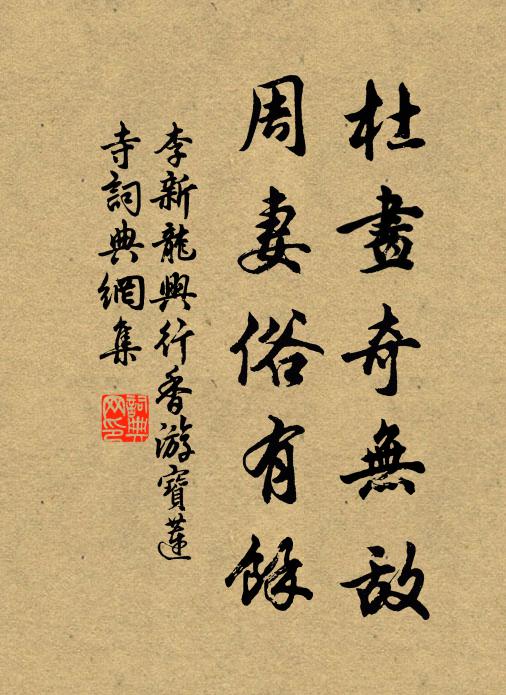 杜畫奇無敵
周妻俗有餘
李新龍興行香游寶蓮
寺詞典網集
詞典网印